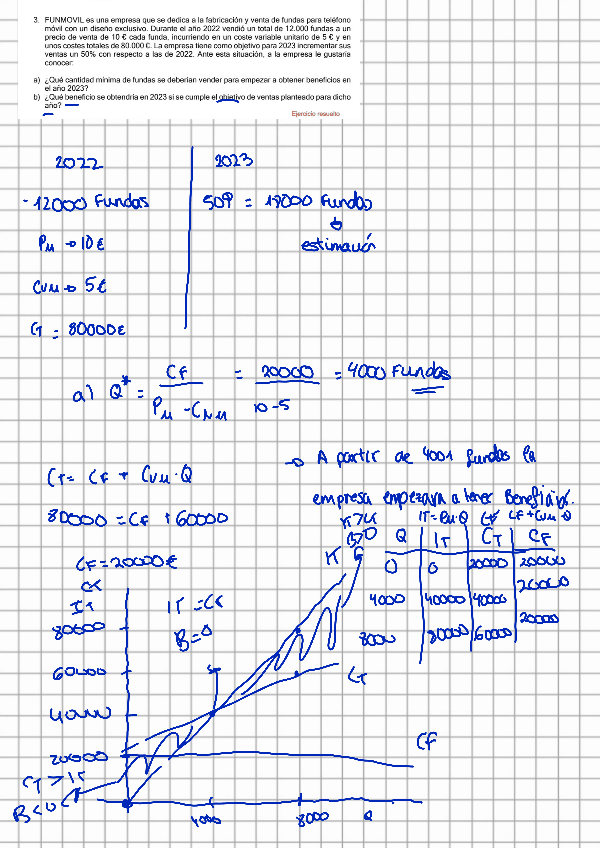 3. FUNMOVIL es una empresa que se dedica a la fabricación y venta de fundas para teléfono
móvil con un diseño exclusivo. Durante el año 2022 vendió un total de 12.000 fundas a un
precio de venta de 10 € cada funda, incurriendo en un coste variable unitario de 5 € y en
unos costes totales de 80.000 €. La empresa tiene como objetivo para 2023 incrementar sus
ventas un 50% con respecto a las de 2022. Ante esta situación, a la empresa le gustaría
conocer:
a) ¿Qué cantidad mínima de fundas se deberían vender para empezar a obtener beneficios en
el año 2023?
b) ¿Qué beneficio se obtendría en 2023 si se cumple el objetivo de ventas planteado para dicho
año?
Ejercicio resuelto
2022
2023
- 12000 Fundas
= 18000 Fundas
estimación
Pu → 10 €
Cvu → 5 €
CT = 80000 €
a) Q* = CF / Pu - Cvu = 20000 / 10-5 = 4000 Fundas
→ A partir de 4001 fundas la
empresa empezara a tener Beneficios.
CT = CF + Cvu · Q
80000 = CF + 60000
CF = 20000 €
IT = Pu·Q
CF
CF + Cvu · Q
B>0
Q IT CT CF
0 0 20000 20000
20000
4000 40000 40000
20000
8000 80000 60000
IT
IT
80000
60000
40000
20000
B=0
CT
CF
CT > IT
B < 0
4000
8000
Q